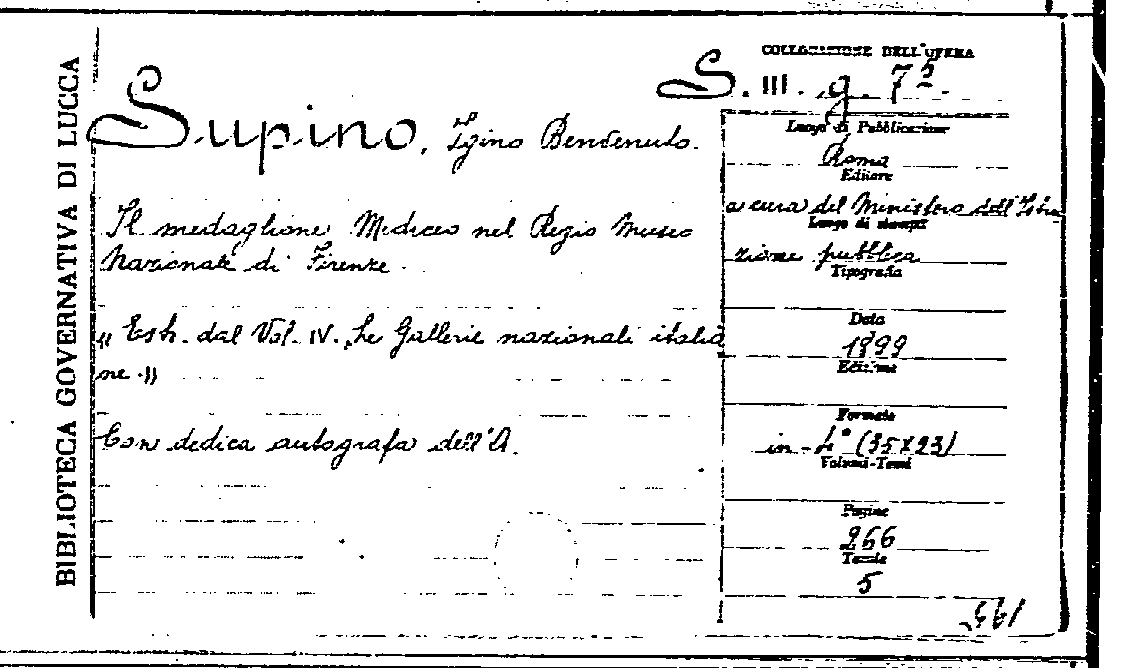 BIBLIOTECA GOVERNATIVA DI LUCCA
COLLOCAZIONE DELL'OPERA
S. III. g. 7².
Supino, Igino Benvenuto.
Il medaglione Mediceo nel Regio Museo
Nazionale di Firenze.
"Estr. dal Vol. IV. Le Gallerie nazionali italia
ne."
Con dedica autografa dell'A.
Luogo di Pubblicazione
Roma
Editore
a cura del Ministero dell'Istru
Luogo di stampa
zione pubblica
Tipografia
Data
1899
Edizione
Formato
in-4° (35x23)
Volumi-Tomi
Pagine
266
Tavole
5